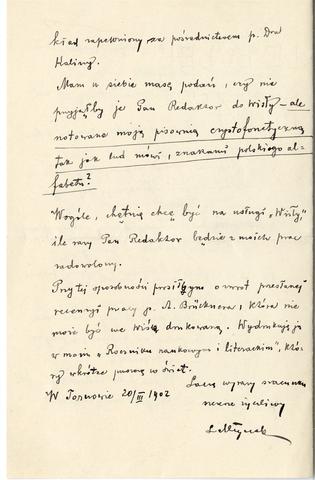 kład zapewniony za pośrednictwem p. Dra
Kaliny.
Mam u siebie masę podań, czy nie
przyjąłby je Pan Redaktor do Wisły – ale
notowane moją pisownią czystofonetyczną
tak jak lud mówi, znakami polskiego al-
fabetu?
Wogóle, chętnie chcę być na usługi „Wisły”
ile razy Pan Redaktor będzie z moich prac
zadowolony.
Przy tej sposobności prosiłbym o zwrot przesłanej
recenzyi pracy p. A. Brücknera, która nie
może być we Wiśle drukowaną. Wydrukuję ją
w moim „Roczniku naukowym i literackim”, któ-
ry wkrótce puszczę w świat.
Łączę wyrazy szacunku
W Tarnowie 20/III 1902
zawsze życzliwy